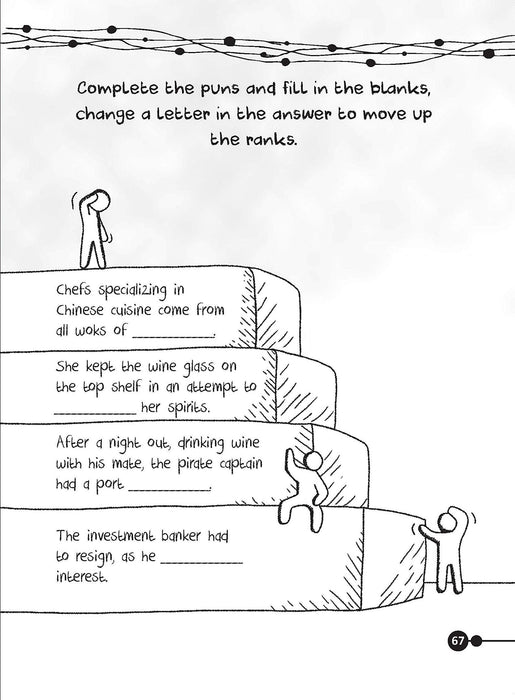 Complete the puns and fill in the blanks,
change a letter in the answer to move up
the ranks.
Chefs specializing in
Chinese cuisine come from
all woks of ____________.
She kept the wine glass on
the top shelf in an attempt to
____________ her spirits.
After a night out, drinking wine
with his mate, the pirate captain
had a port ____________.
The investment banker had
to resign, as he ____________
interest.
67